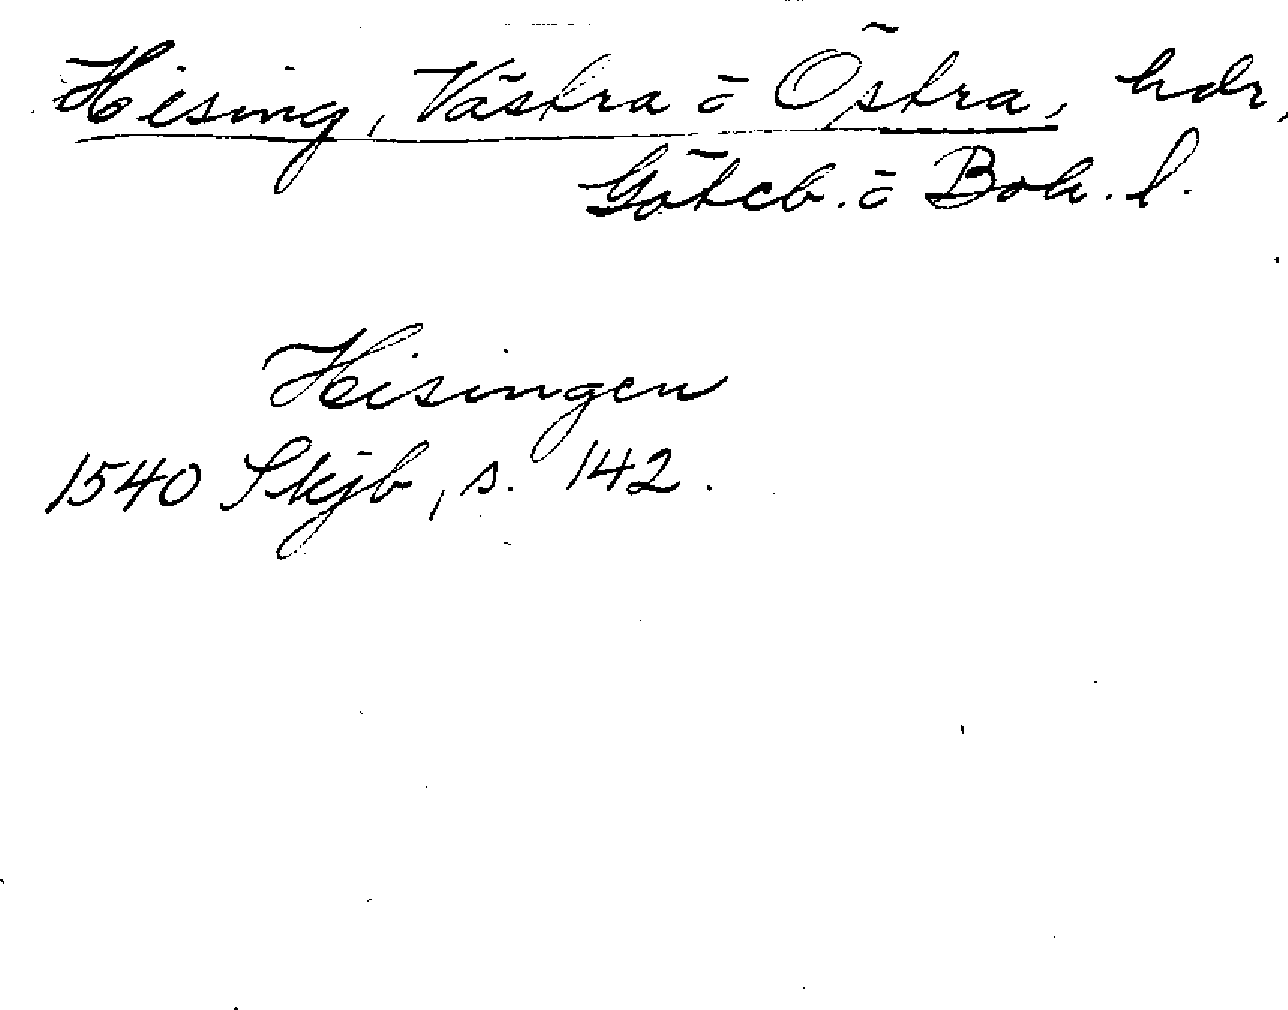 Hising, Västra o Östra, hdr,
Göteb. o Boh. l.
Hisingen
1540 Skjb, s. 142.